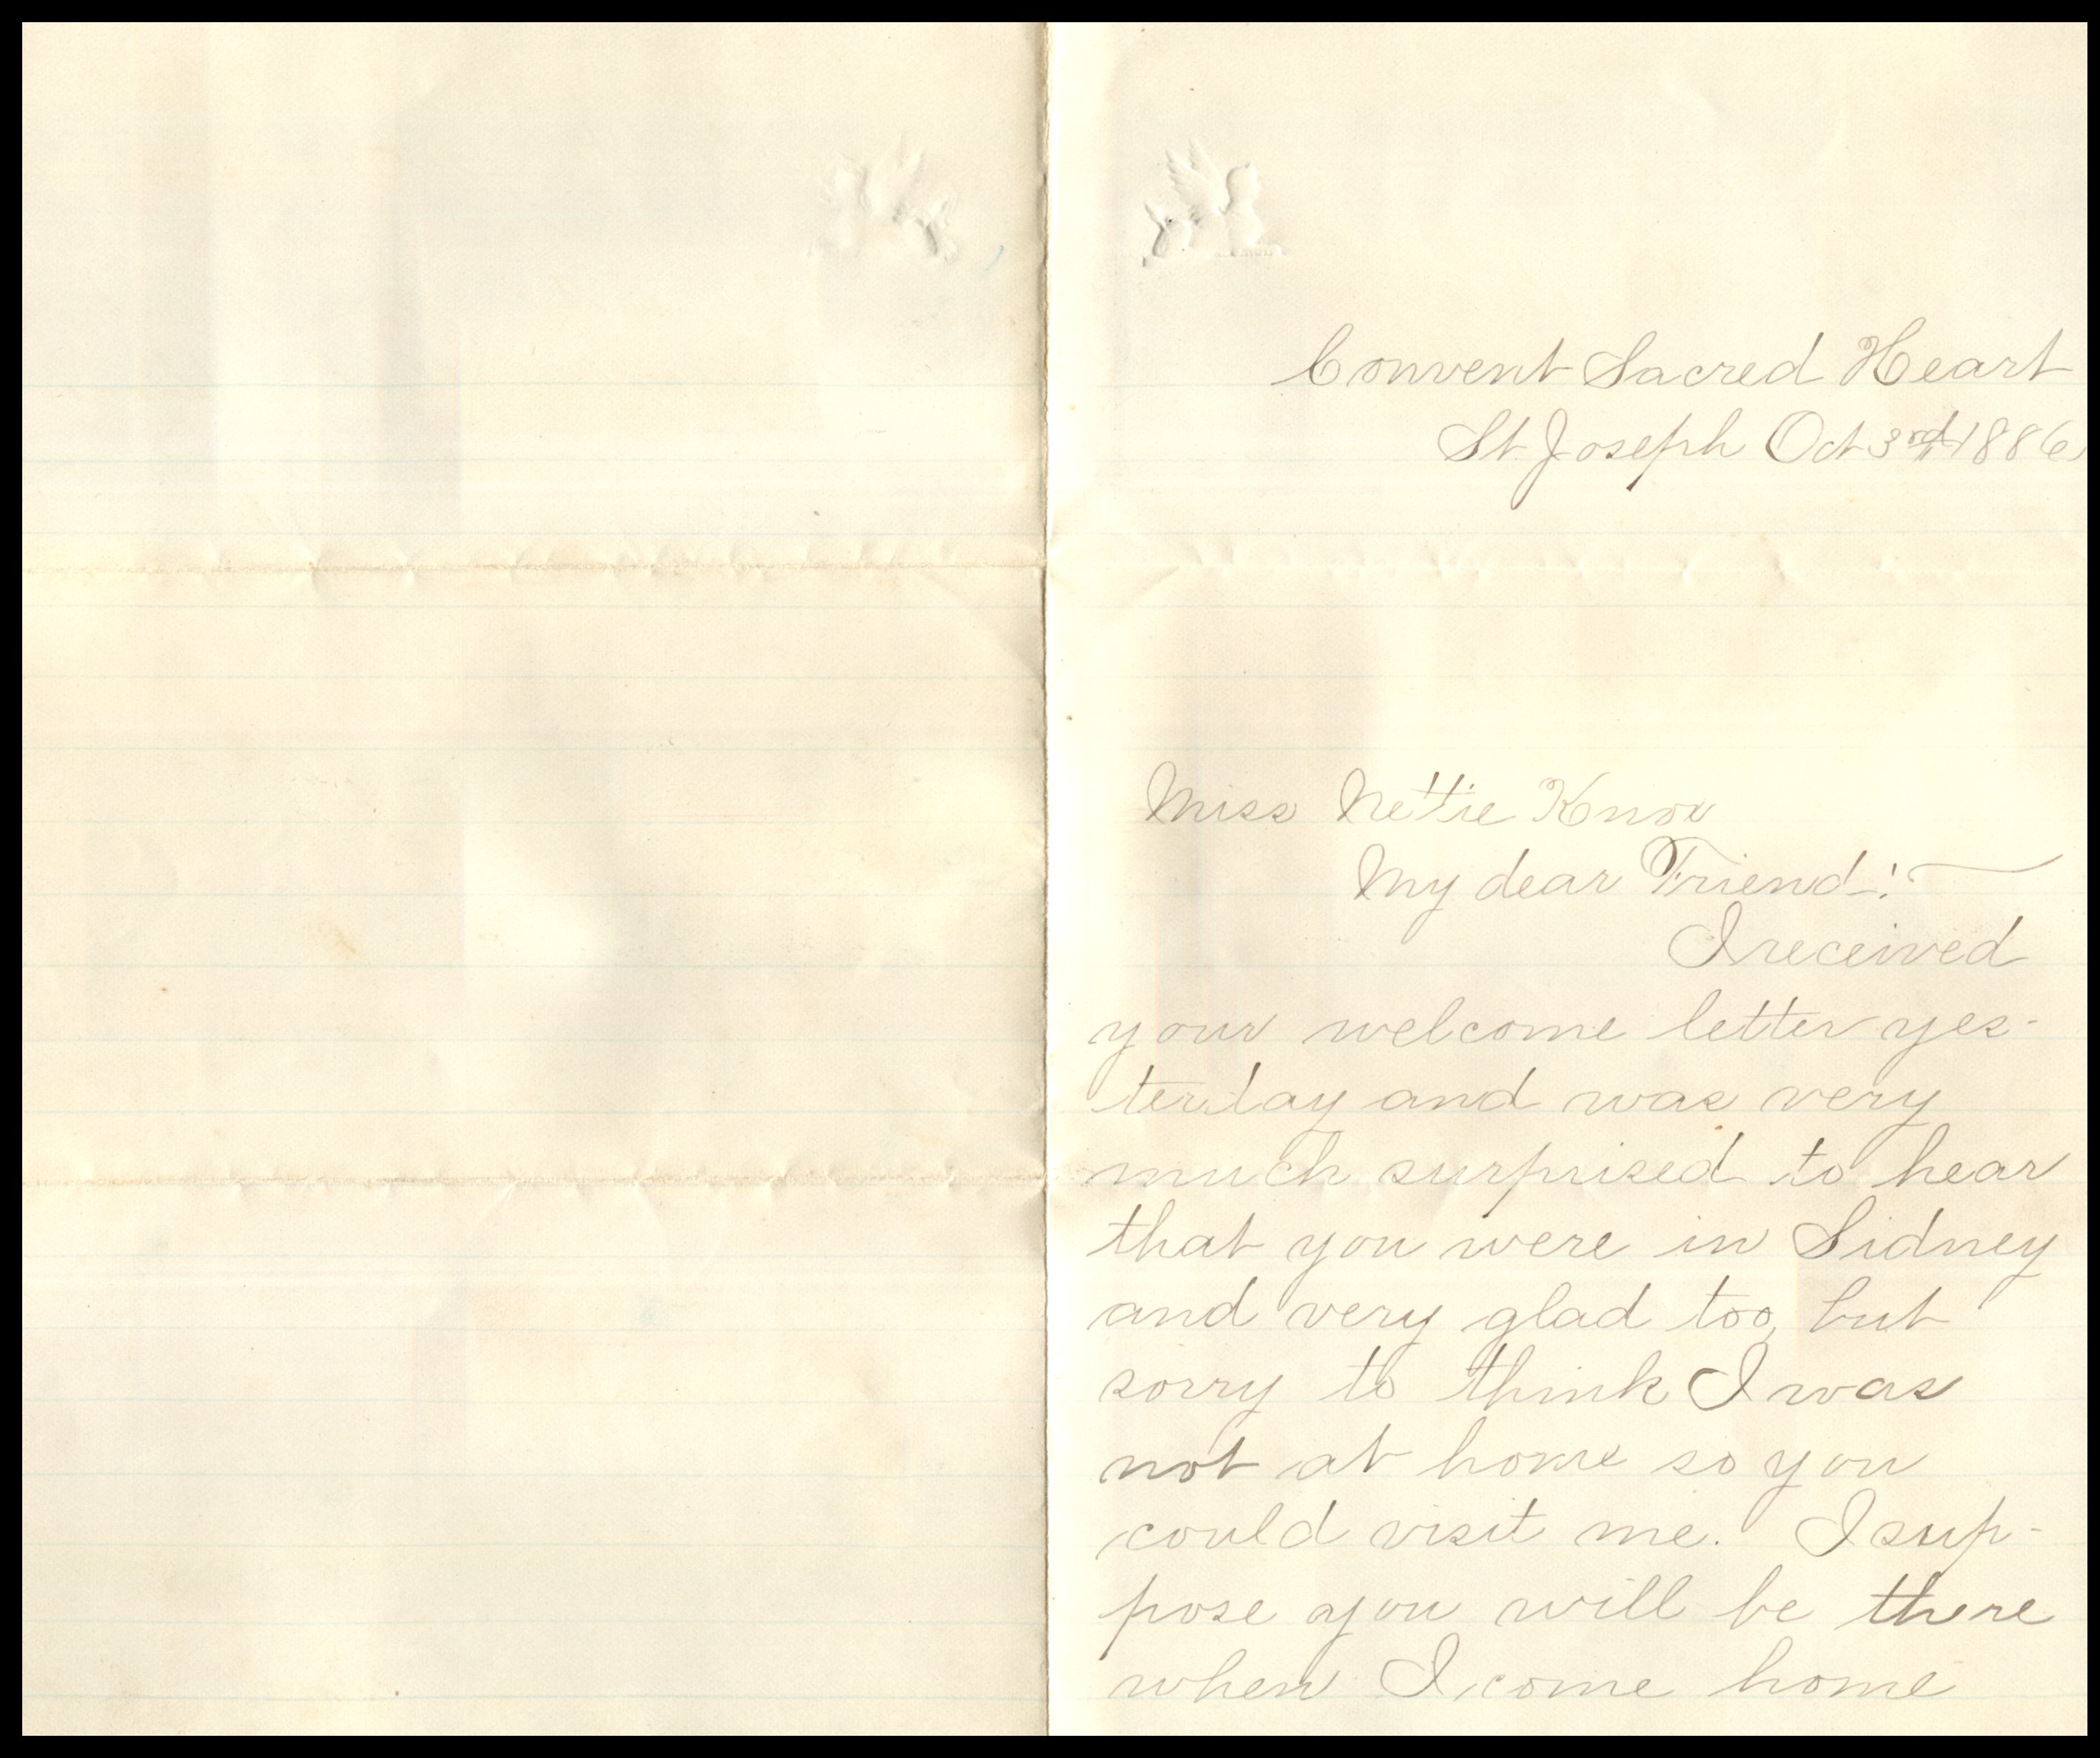 Convent Sacred Heart
St. Joseph Oct 3rd 1886
Miss Nettie Knox
My dear Friend:
I received
your welcome letter yes-
terday and was very
much surprised to hear
that you were in Sidney
and very glad too, but
sorry to think I was
not at home so you
could visit me. I sup-
pose you will be there
when I come home